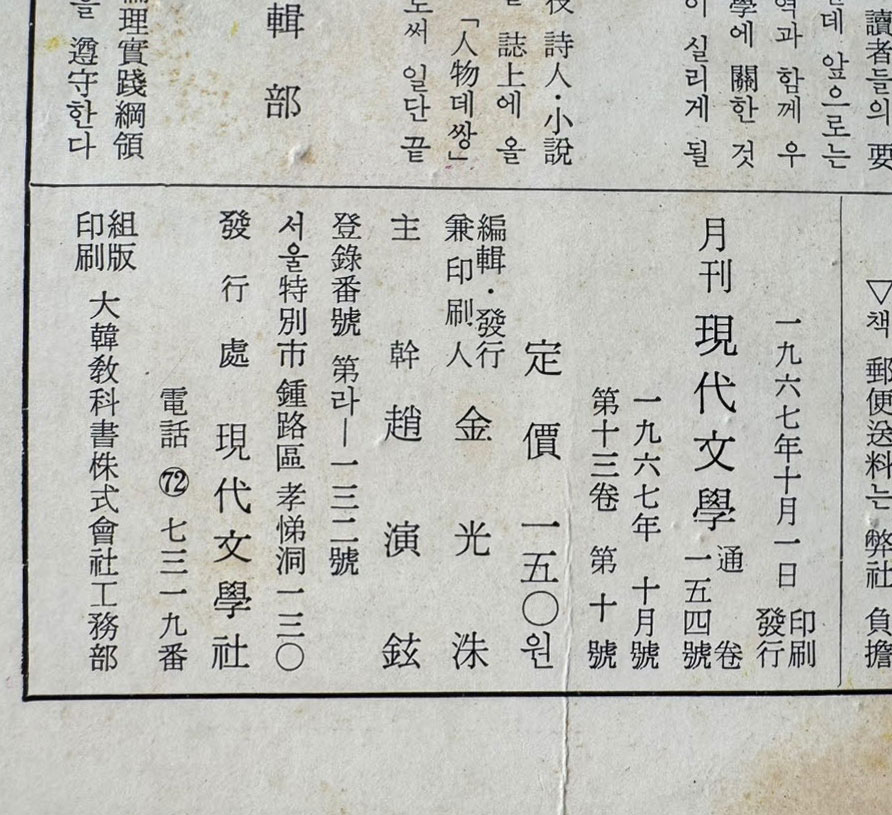 讀者들의 要
데 앞으로는
과 함께 우
學에 關한 것
이 실리게 될
詩人·小說
誌上에 올
「人物데쌍」
써 일단 끝
輯部
理實踐綱領
을 遵守한다
▽책 郵便送料는 弊社 負擔
一九六七年十月一日 印刷
發行
月刊 現代文學 通卷
一五四號
一九六七年 十月號
第十三卷 第十號
定價 一五〇원
編輯·發行
兼印刷人 金光洙
主幹 趙演鉉
登錄番號 第라—一三二號
서울特別市 鍾路區 孝悌洞 一三〇
發行處 現代文學社
電話 ㊆ 七三一九番
組版
印刷 大韓敎科書株式會社工務部